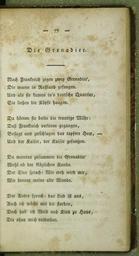 — 75 —
Die Grenadier.
Nach Frankreich zogen zwey Grenadier',
Die waren in Rußland gefangen.
Und als sie kamen in's deutsche Quartier,
Sie ließen die Köpfe hangen.
Da hörten sie beide die traurige Mähr:
Daß Frankreich verloren gegangen,
Besiegt und zerschlagen das tapfere Heer, —
Und der Kaiser, der Kaiser gefangen.
Da weinten zusammen die Grenadier'
Wohl ob der kläglichen Kunde.
Der Eine sprach: Wie weh wird mir,
Wie brennt meine alte Wunde.
Der Andre sprach: das Lied ist aus,
Auch ich möcht mit dir sterben,
Doch hab' ich Weib und Kind zu Haus,
Die ohne mich verderben.